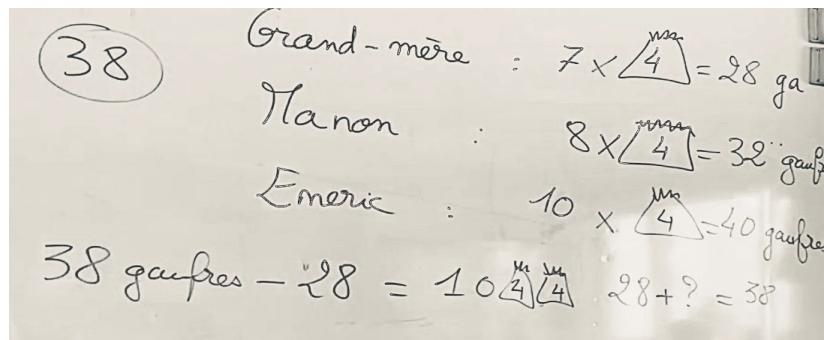 38
Grand-mère : 7 x 4 = 28 ga
Manon : 8 x 4 = 32 gaufr
Emeric : 10 x 4 = 40 gaufres
38 gaufres - 28 = 10 4 4 28 + ? = 38